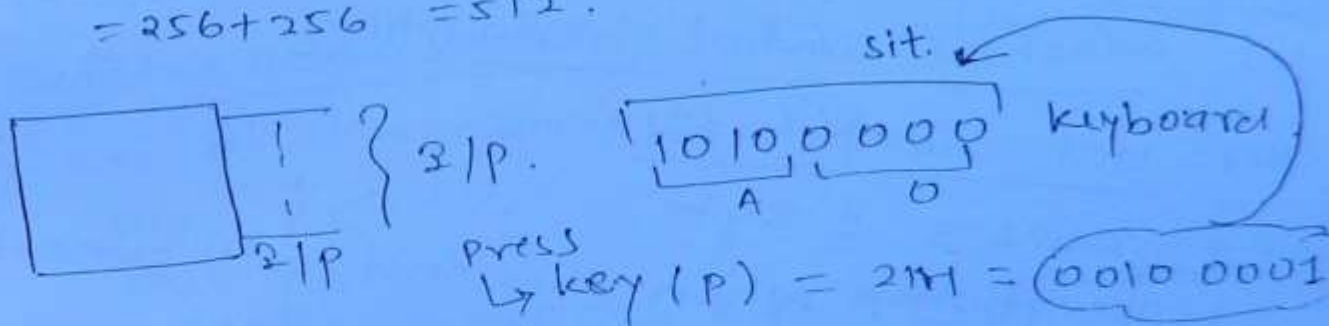 = 256+256 = 512.
sit.
I/P. 10100000 keyboard
A 0
I/P press
↳ key (P) = 21H = 0010 0001